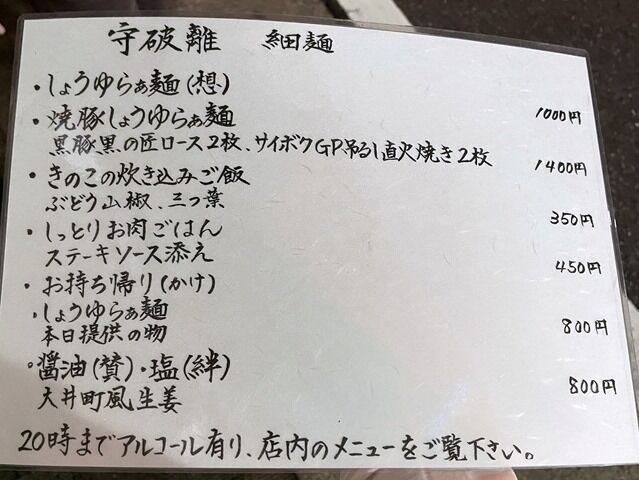 守破離 細麺
・しょうゆらぁ麺(想) 1000円
・焼豚しょうゆらぁ麺 1400円
黒豚黒の匠ロース2枚、サイボクGP吊るし直火焼き2枚
・きのこの炊き込みご飯 350円
ぶどう山椒、三つ葉
・しっとりお肉ごはん 450円
ステーキソース添え
・お持ち帰り(かけ)
・しょうゆらぁ麺 800円
本日提供の物
・醤油(賛)・塩(絆) 800円
大井町風生姜
20時までアルコール有り、店内のメニューをご覧下さい。